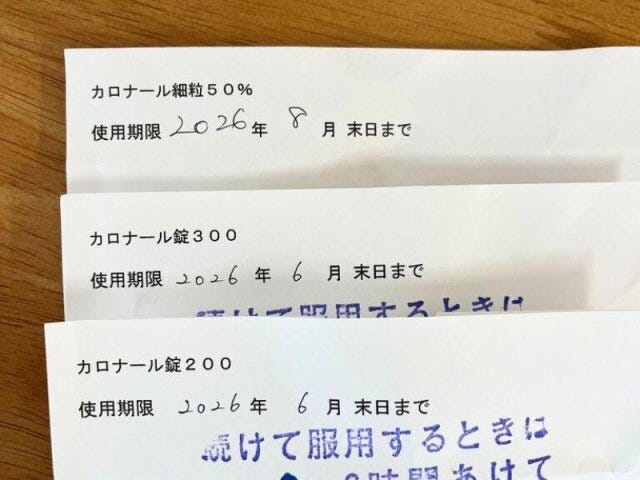 カロナール細粒50%
使用期限 2026年 8 月 末日まで
カロナール錠300
使用期限 2026 年 6 月 末日まで
続けて服用するときは
カロナール錠200
使用期限 2026 年 6 月 末日まで
続けて服用するときは
時間あけて